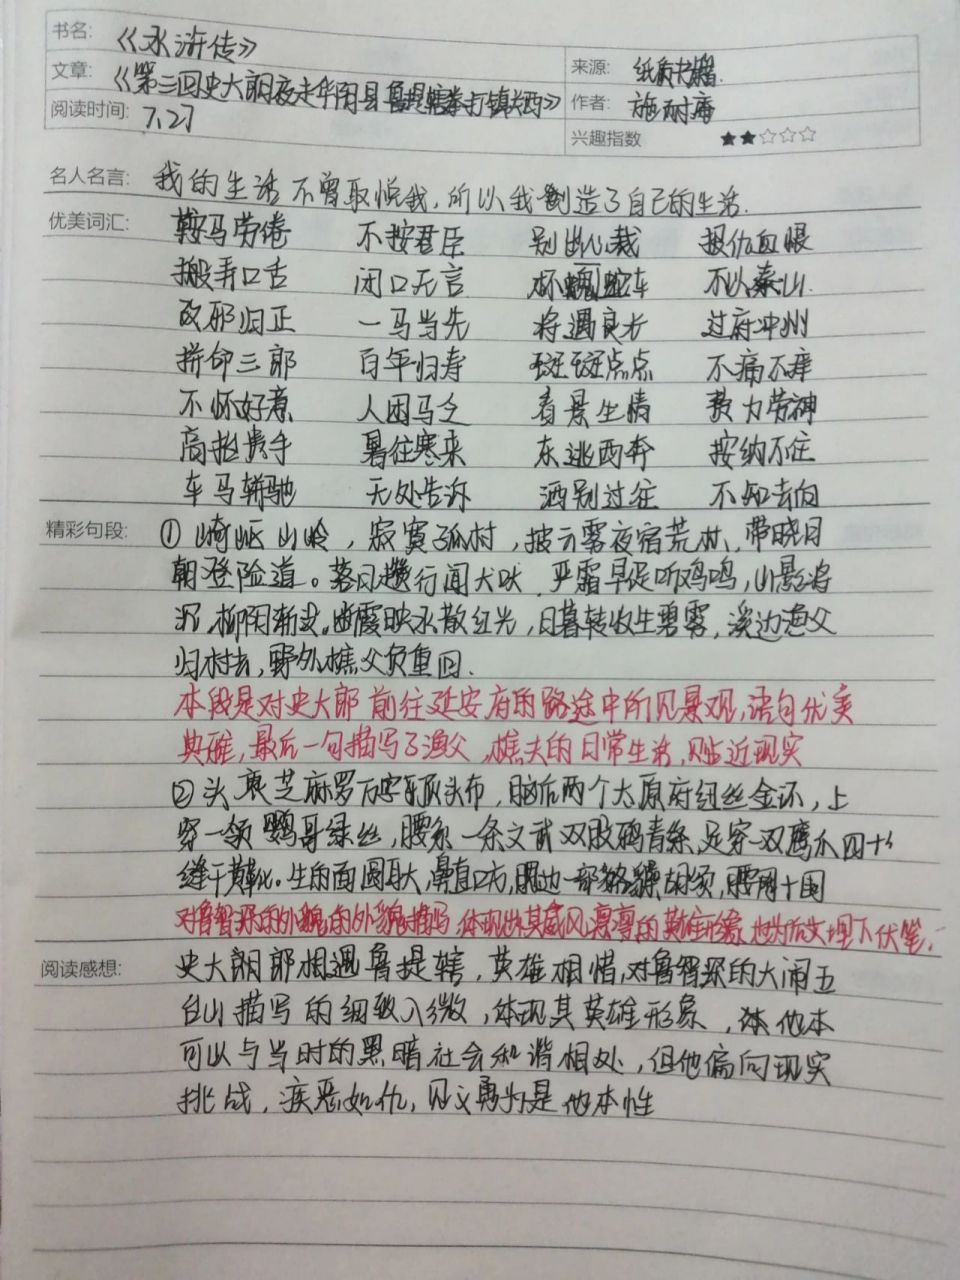 书名: 《水浒传》
来源: 纸质书籍.
文章: 《第三回史大郎夜走华阴县 鲁提辖拳打镇关西》
作者: 施耐庵
阅读时间: 7.27
兴趣指数 ★★☆☆☆
名人名言: 我的生活不曾取悦我,所以我创造了自己的生活.
优美词汇: 鞍马劳倦 不按君臣 别出心裁 报仇血恨
搬弄口舌 闭口无言 杯弓蛇车 不以泰山.
改邪归正 一马当先 将遇良长 过府冲州
拼命三郎 百年归寿 斑斑点点 不痛不痒
不怀好意 人困马乏 看景生情 费力劳神
高抬贵手 暑往寒来 东逃西奔 按纳不住
车马轿驰 无处告诉 酒别过往 不知去向
精彩句段: ①崎岖山岭,寂寞孤村,披云雾夜宿荒林,带晓月
朝登险道。落日趱行闻犬吠,严霜早促听鸡鸣,山影将
沉,柳阴渐没。断霞映水散红光,日暮转收生碧雾,溪边渔父
归村去,野外樵父负重回.
本段是对史大郎前往延安府的路途中所见景观,语句优美
典雅,最后一句描写了渔父,樵夫的日常生活,贴近现实
②头裹芝麻罗万字顶头布,脑后两个太原府纽丝金环,上
穿一领鹦哥绿丝,腰系一条文武双股鸦青绦,足穿一双鹰爪四
缝干黄靴。生的面圆耳大,鼻直口方,腮边一部貉 胡须,腰阔十围
对鲁智深的外貌的外貌描写,体现出其威风凛凛的英雄形象,也为后文埋下伏笔,
阅读感想: 史大郎郎相遇鲁提辖,英雄相惜,对鲁智深的大闹五
台山描写的细致入微,体现其英雄形象, 他本
可以与当时的黑暗社会和谐相处,但他偏向现实
挑战,疾恶如仇,见义勇为是他本性